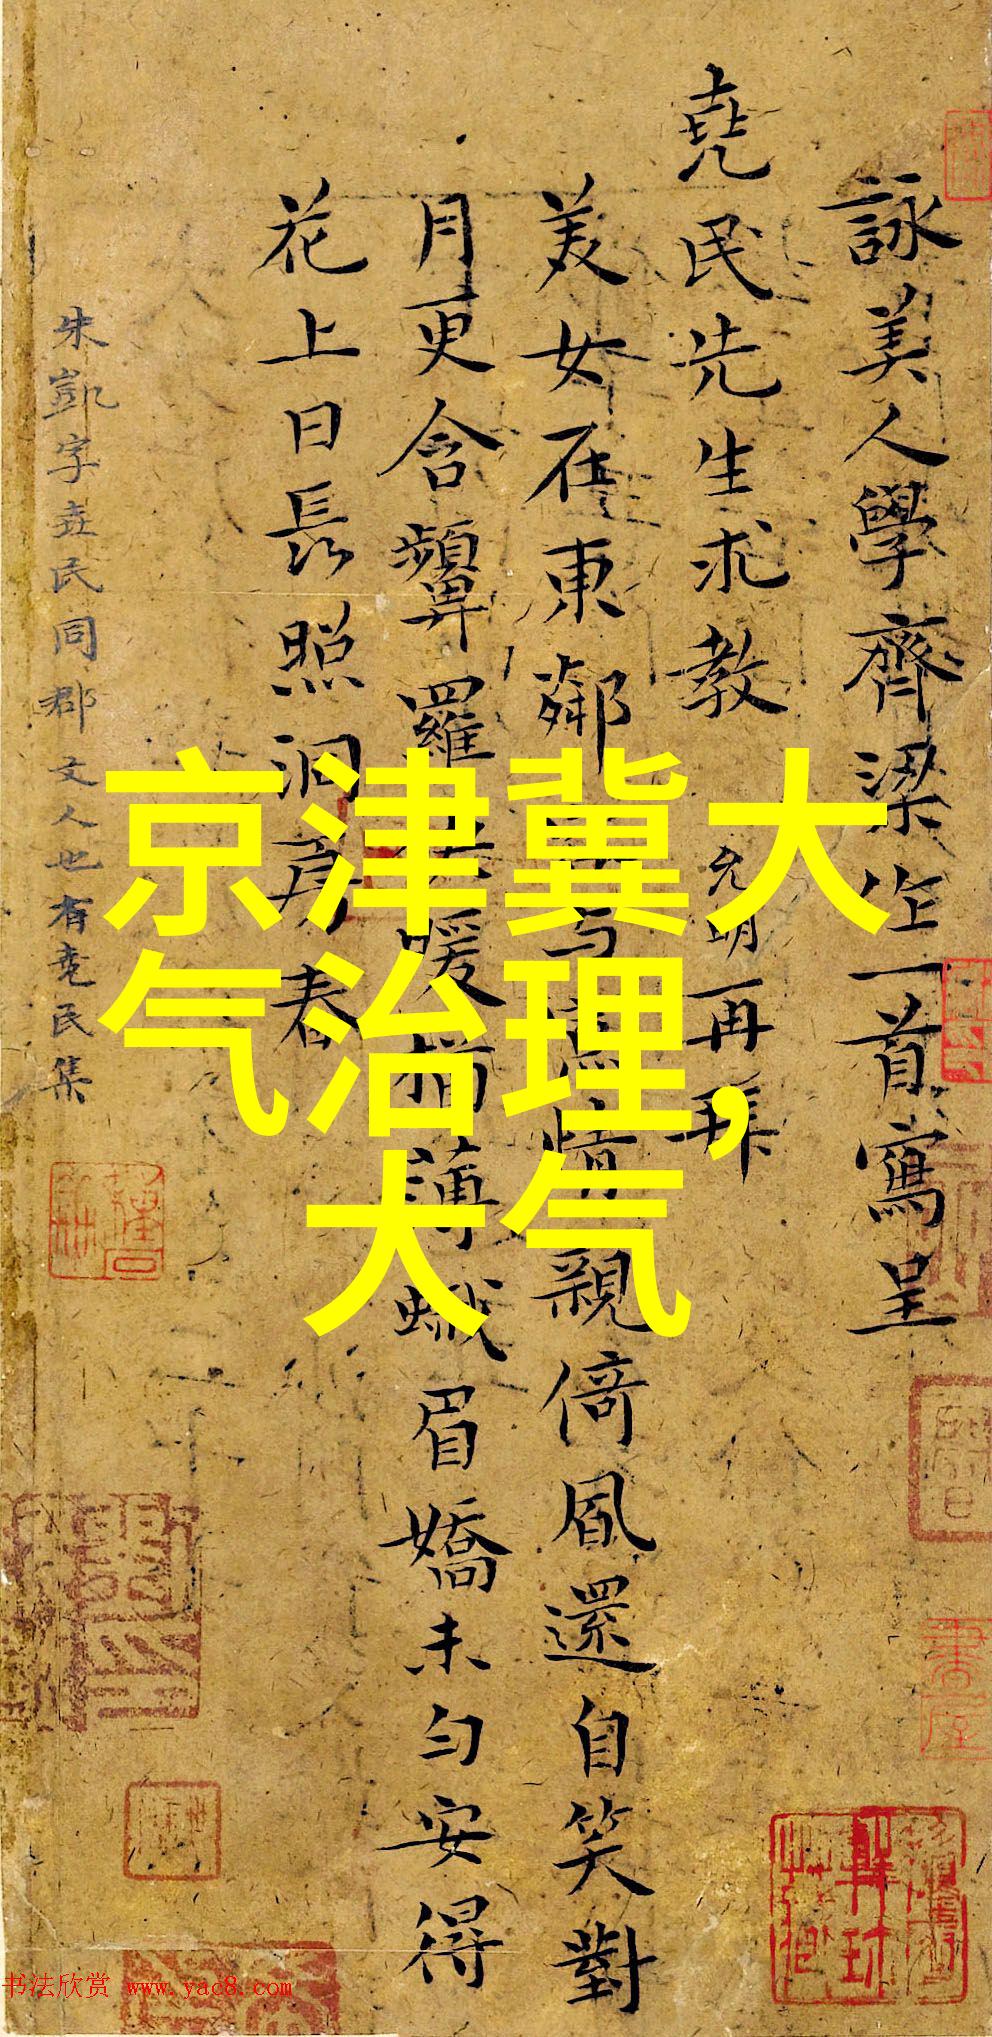 詠美人學齊梁作一首寫呈
堯民先生求教 允明再拜
美女在東鄰 親倚風還自笑對
月更含顰羅 暖 薄蛾眉嬌未勻安得
花上日長照洞房春
朱凱字堯民同郡文人也有堯民集
京津冀大
气治理,
大气
书法欣赏 www.yac8.com